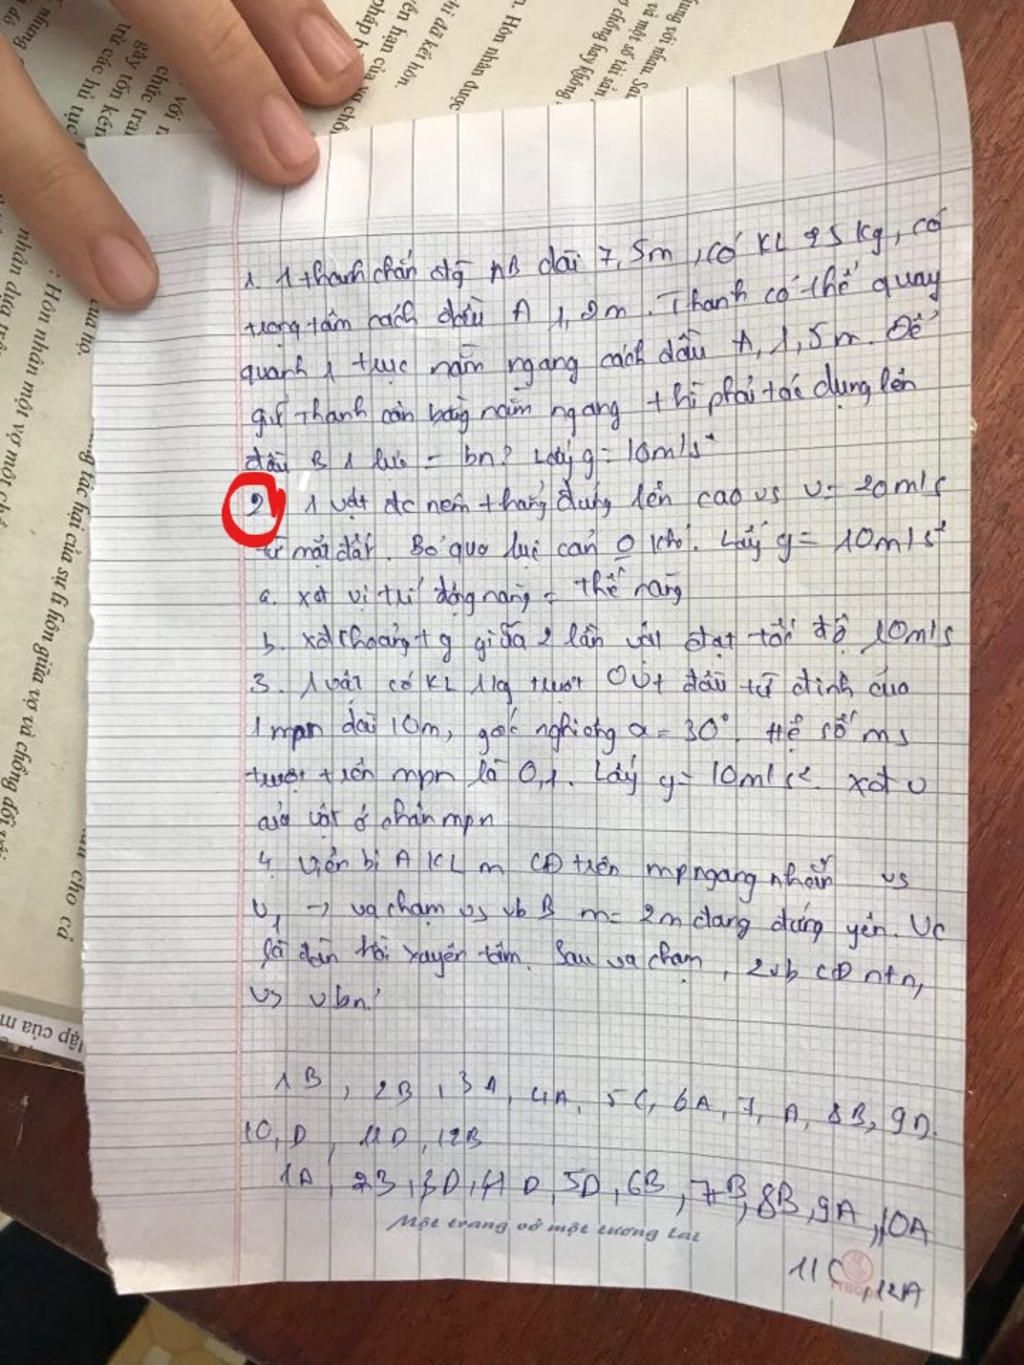 1. 1 thanh chắn đg AB dài 7,5m, có KL 25 kg, có
trọng tâm cách đầu A 1,2m. Thanh có thể quay
quanh 1 trục nằm ngang cách đầu A, 1,5m. Để
giữ thanh cân bằng nằm ngang thì phải tác dụng lên
đầu B 1 lực = bn? Lấy g = 10m/s²
2 1 vật đc ném thẳng đứng lên cao vs v = 20m/s
từ mặt đất. Bỏ qua lực cản 0 khí. Lấy g = 10m/s²
a. xđ vị trí động năng = thế năng
b. xđ khoảng tg giữa 2 lần vật đạt tốc độ 10m/s
3. 1 vật có KL 1kg trượt 0 vt đầu từ đỉnh của
1 mpn dài 10m, góc nghiêng α = 30°. Hệ số ms
trượt trên mpn là 0,1. Lấy g = 10m/s². xđ v
của vật ở chân mpn
4. Viên bi A KL m CĐ trên mp ngang nhẵn vs
v₁ → va chạm vs vb B m = 2m đang đứng yên. VC
là đàn hồi xuyên tâm. Sau va chạm, 2vb CĐ ntn,
vs v bn?
1B, 2B, 3A, 4A, 5C, 6A, 7, A, 8B, 9D.
10, D, 11D, 12B
1A, 2B, 3D, 4D, 5D, 6B, 7B, 8B, 9A, 10A
Một trang vở một tương lai
11C, 12A
trừ các hủ tục
chức trai
gây tốn kém
hi đã kết hôn.
. Hôn nhân được
: Hôn nhân một vợ một ch
ng tác hại của sự li hôn giữa vợ và chồng đối với
cho cả